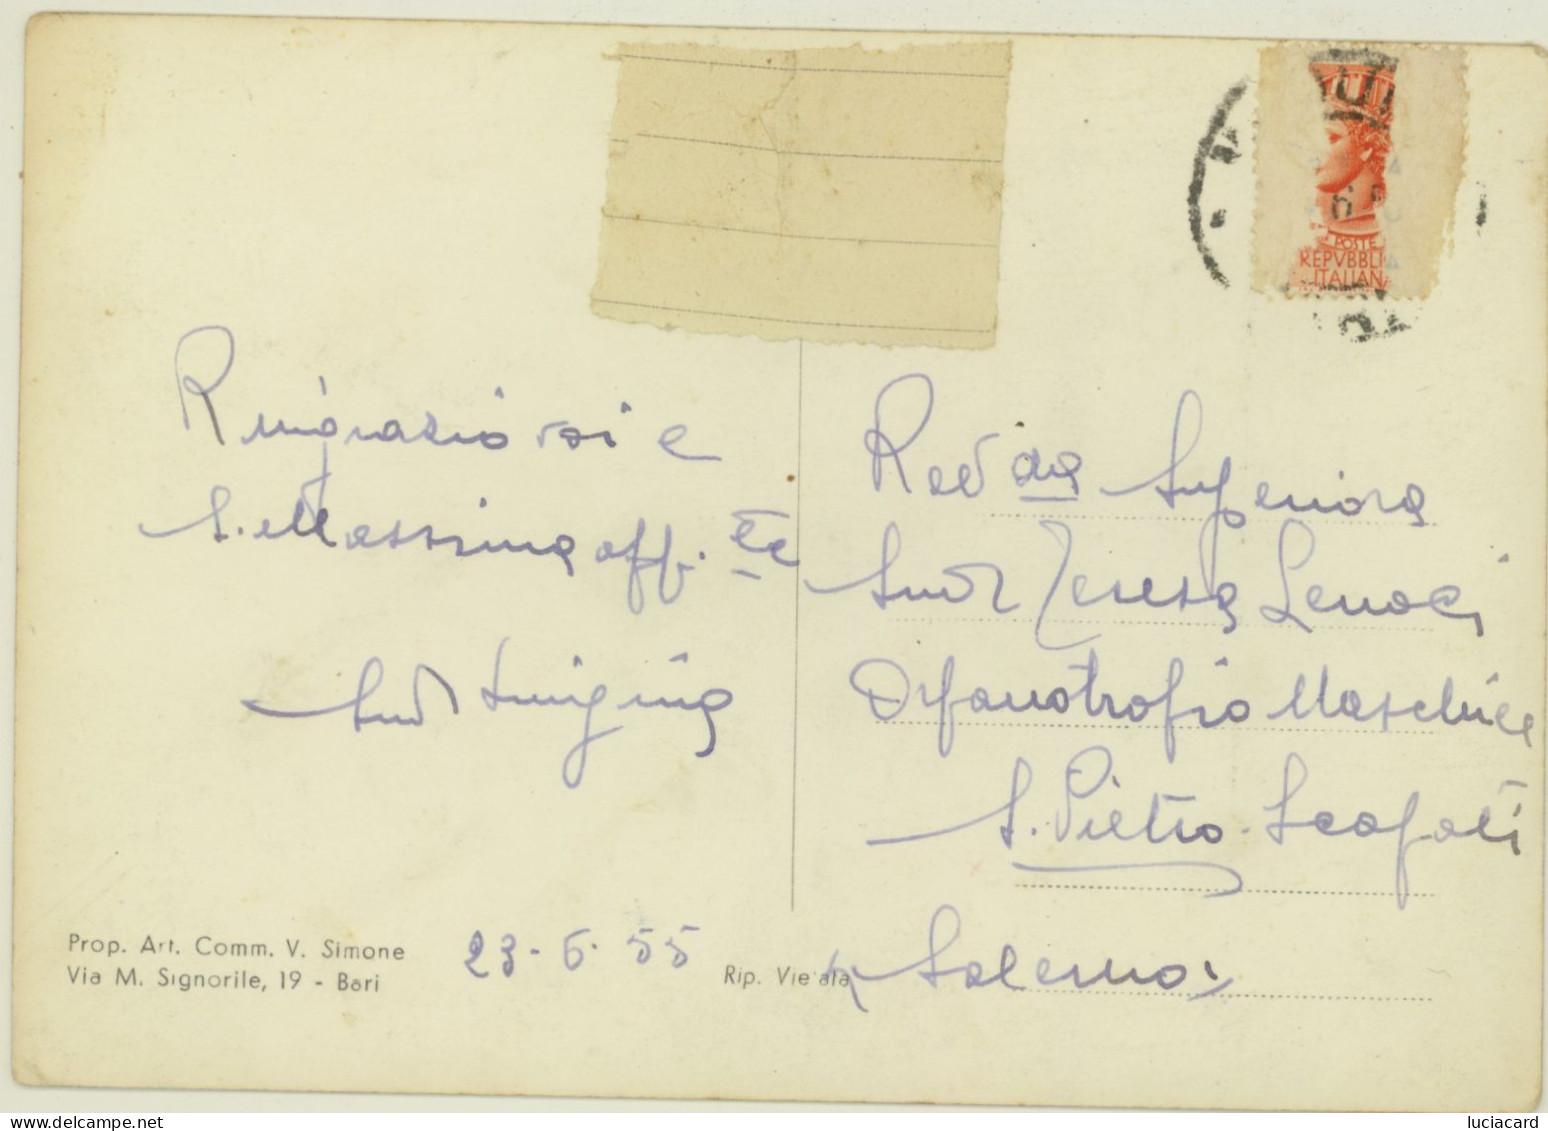 Ringrazio voi e
S. Messina aff. te
Suor Luigina
Prop. Art. Comm. V. Simone
Via M. Signorile, 19 - Bari
23-6-55
Rip. Vietata
POSTE
REPVBBLI
ITALIAN
Rev da Superiora
Suor Teresa Lenoci
Orfanotrofio Maschile
S. Pietro - Scafati
(Salerno)
www.delcampe.net
luciacard